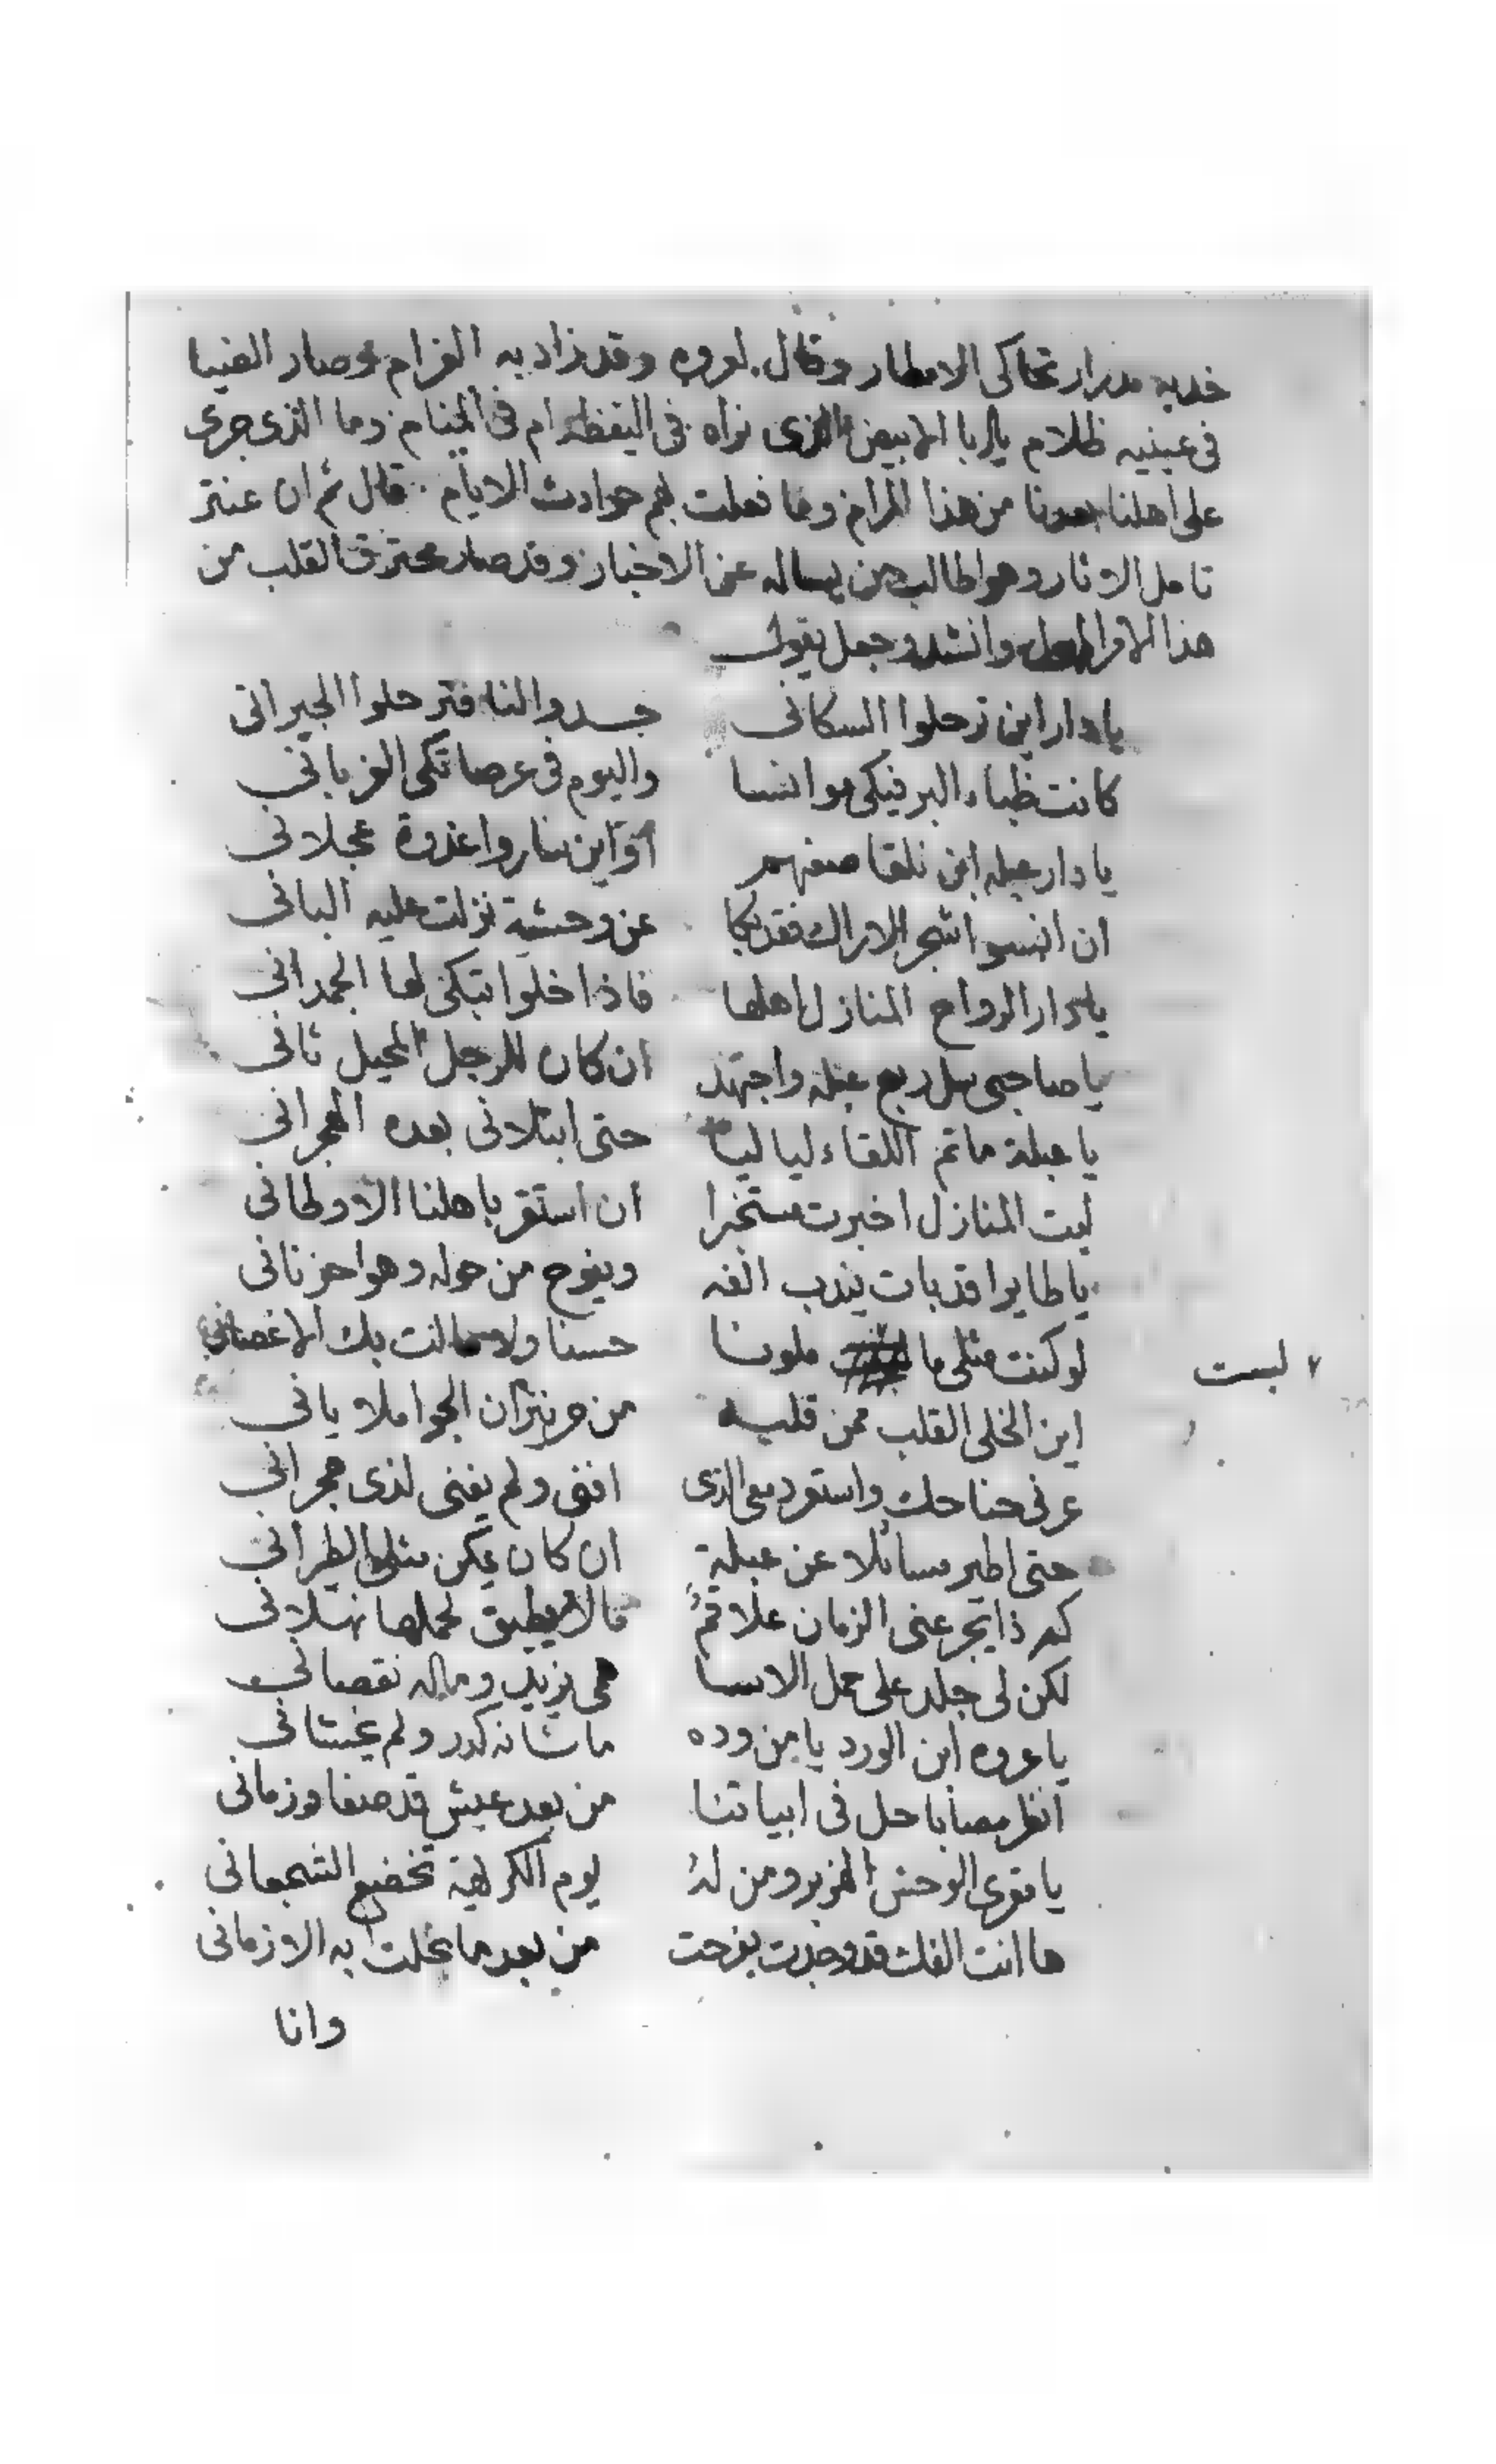 خديه مدرار تحاكى الامطار وقال لعروه وقد زاد به الغرام وصار الضيا
فى عينيه ظلام يابا الابيض الذى نراه فى اليقظه ام فى المنام وما الذى جرى
على اهلنا بعدنا من هذا المرام وما فعلت بهم حوادث الايام قال ثم ان عنتر
تامل الاثار وهو طالب من يساله عن الاخبار وقد صار محترق القلب من
هذا الامر وانشد وجعل يقول
يا دار اين ترحلوا السكانى جدوا لنا فترحلوا الجيرانى
كانت ظباء البر فيكى موانسا واليوم فى عرصاتكى الغربانى
يا دار عبله اين نلقا صفهم او اين ساروا غدوة عجلانى
ان انسوا شجر الاراك فقد بكا عن وحشية نزلت عليه البانى
يا دار ارواح المنازل اهلها فاذا خلوا تبكى لها الجمدانى
يا صاحبى سل ربع عبله واجتهد ان كان للرجل المحيل ثانى
يا عبلة ما تم اللقاء لياليا حتى ابتلانى بعده الهجرانى
ليت المنازل اخبرت مستخبرا ان استقر باهلنا الاوطانى
يا طايرا قد بات يندب الفه وينوح من حوله وهو احزنانى
لو كنت مثلى ما لبست ملونا حسنا ولا مالت بك الاغصانى
اين الخلى القلب ممن قلبه من حر نيران الجوا ملايانى
عرنى جناحك واستودمعى الذى افنى ولم يفنى لذى هجرانى
حتى اطير مسائلا عن عبلة ان كان يمكن مثلى الطيرانى
كم ذا يجرعنى الزمان علاقم مالا يطيق لحملها ثهلانى
لكن لى جلد على حمل الاسا همى يزيد وماله نقصانى
يا عروه ابن الورد يا من وده ما شانه كدر ولم يختانى
انظر مصابا حل فى ابياتنا من بعد عيش قد صفا وزمانى
يا مقرى الوحش الهزبر ومن له يوم الكريهة تخضع الشجعانى
ها انت الفك قد وجدت بفرحت من بعد ما بخلت به الازمانى
وانا